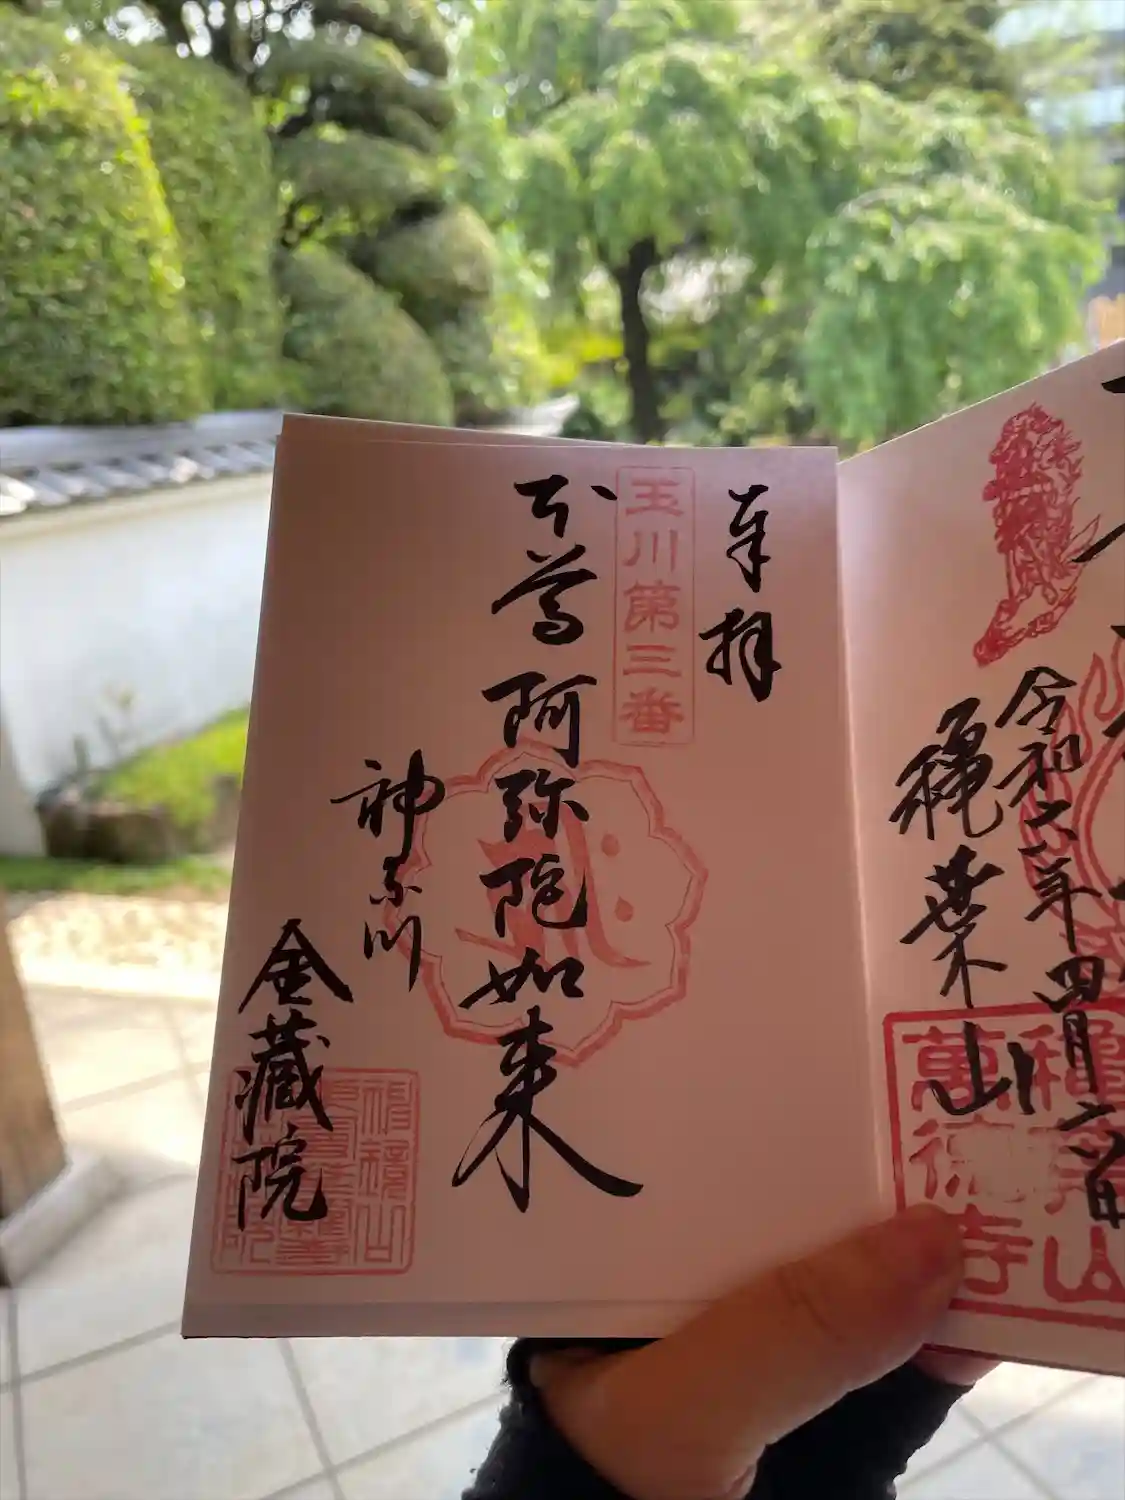 令和六年四月六日
穐葉山
穐葉山
萬徳寺
奉拝
玉川第三番
本尊阿弥陀如来
神奈川
金蔵院
神鏡山